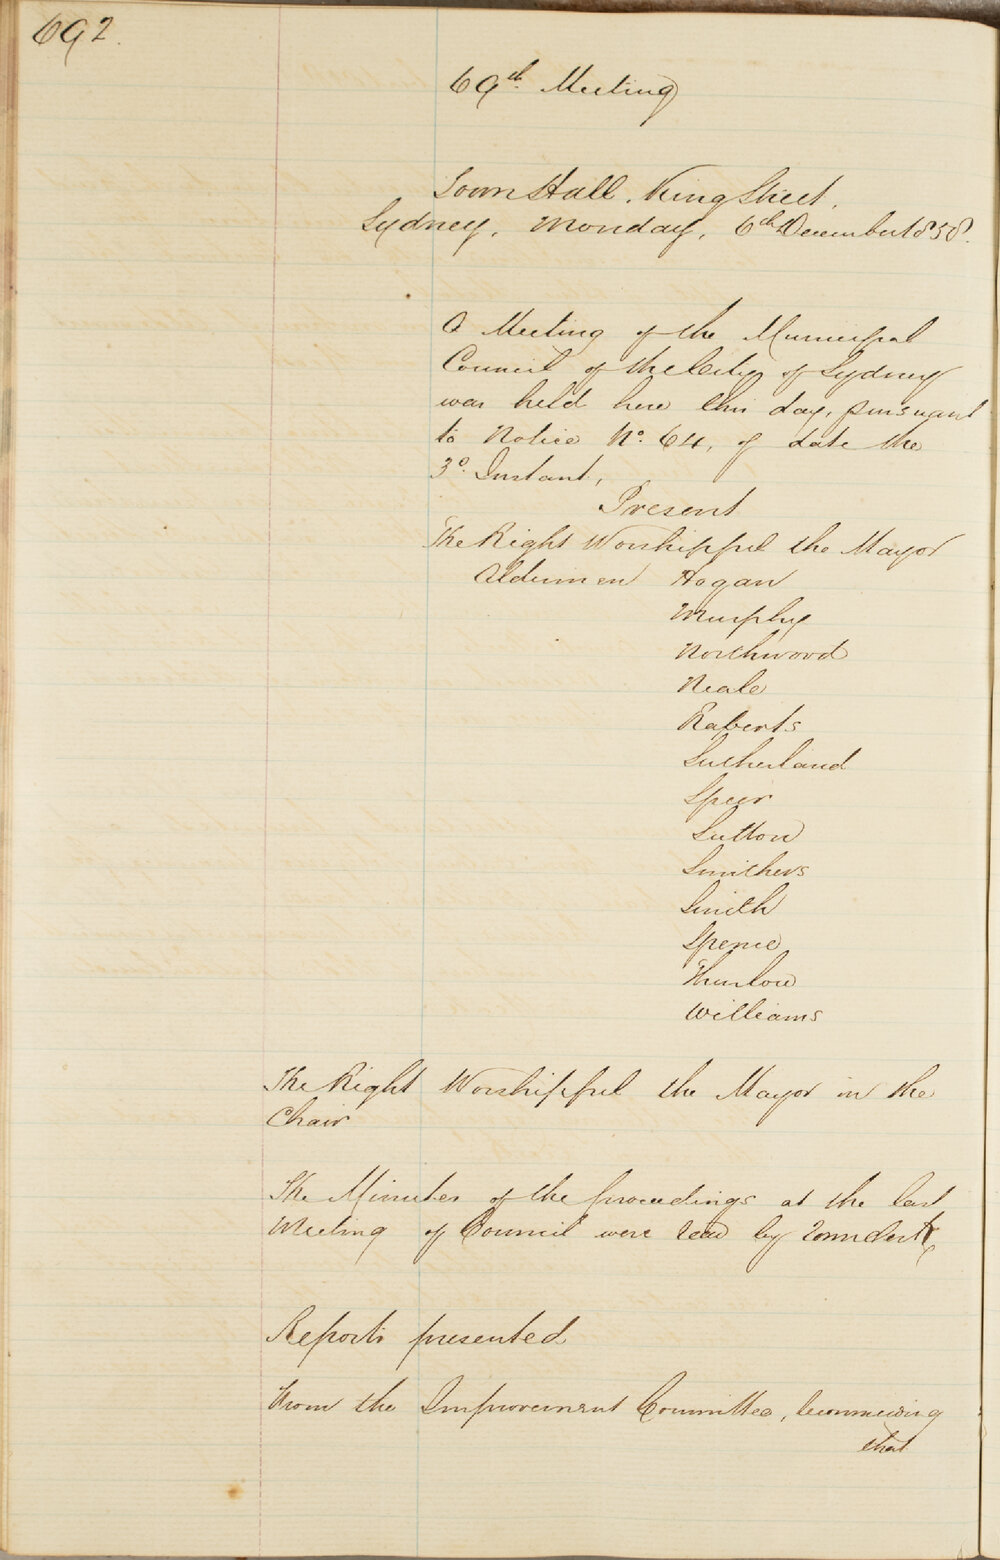 692.
69th Meeting
Town Hall, King Street,
Sydney, Monday, 6th December 1858.
A Meeting of the Municipal
Council of the City of Sydney
was held here this day, pursuant
to Notice No. 64, of date the
3o. Instant,
Present
The Right Worshipful the Mayor
Aldermen Hogan
Murphy
Northwood
Neale
Raberts
Sutherland
Speer
Sutton
Smithers
Smith
Spence
Thurlow
Williams
The Right Worshipful the Mayor in the
Chair
The Minutes of the proceedings at the last
Meeting of Council were read by
Reports presented
From the Improvement Committee,
that